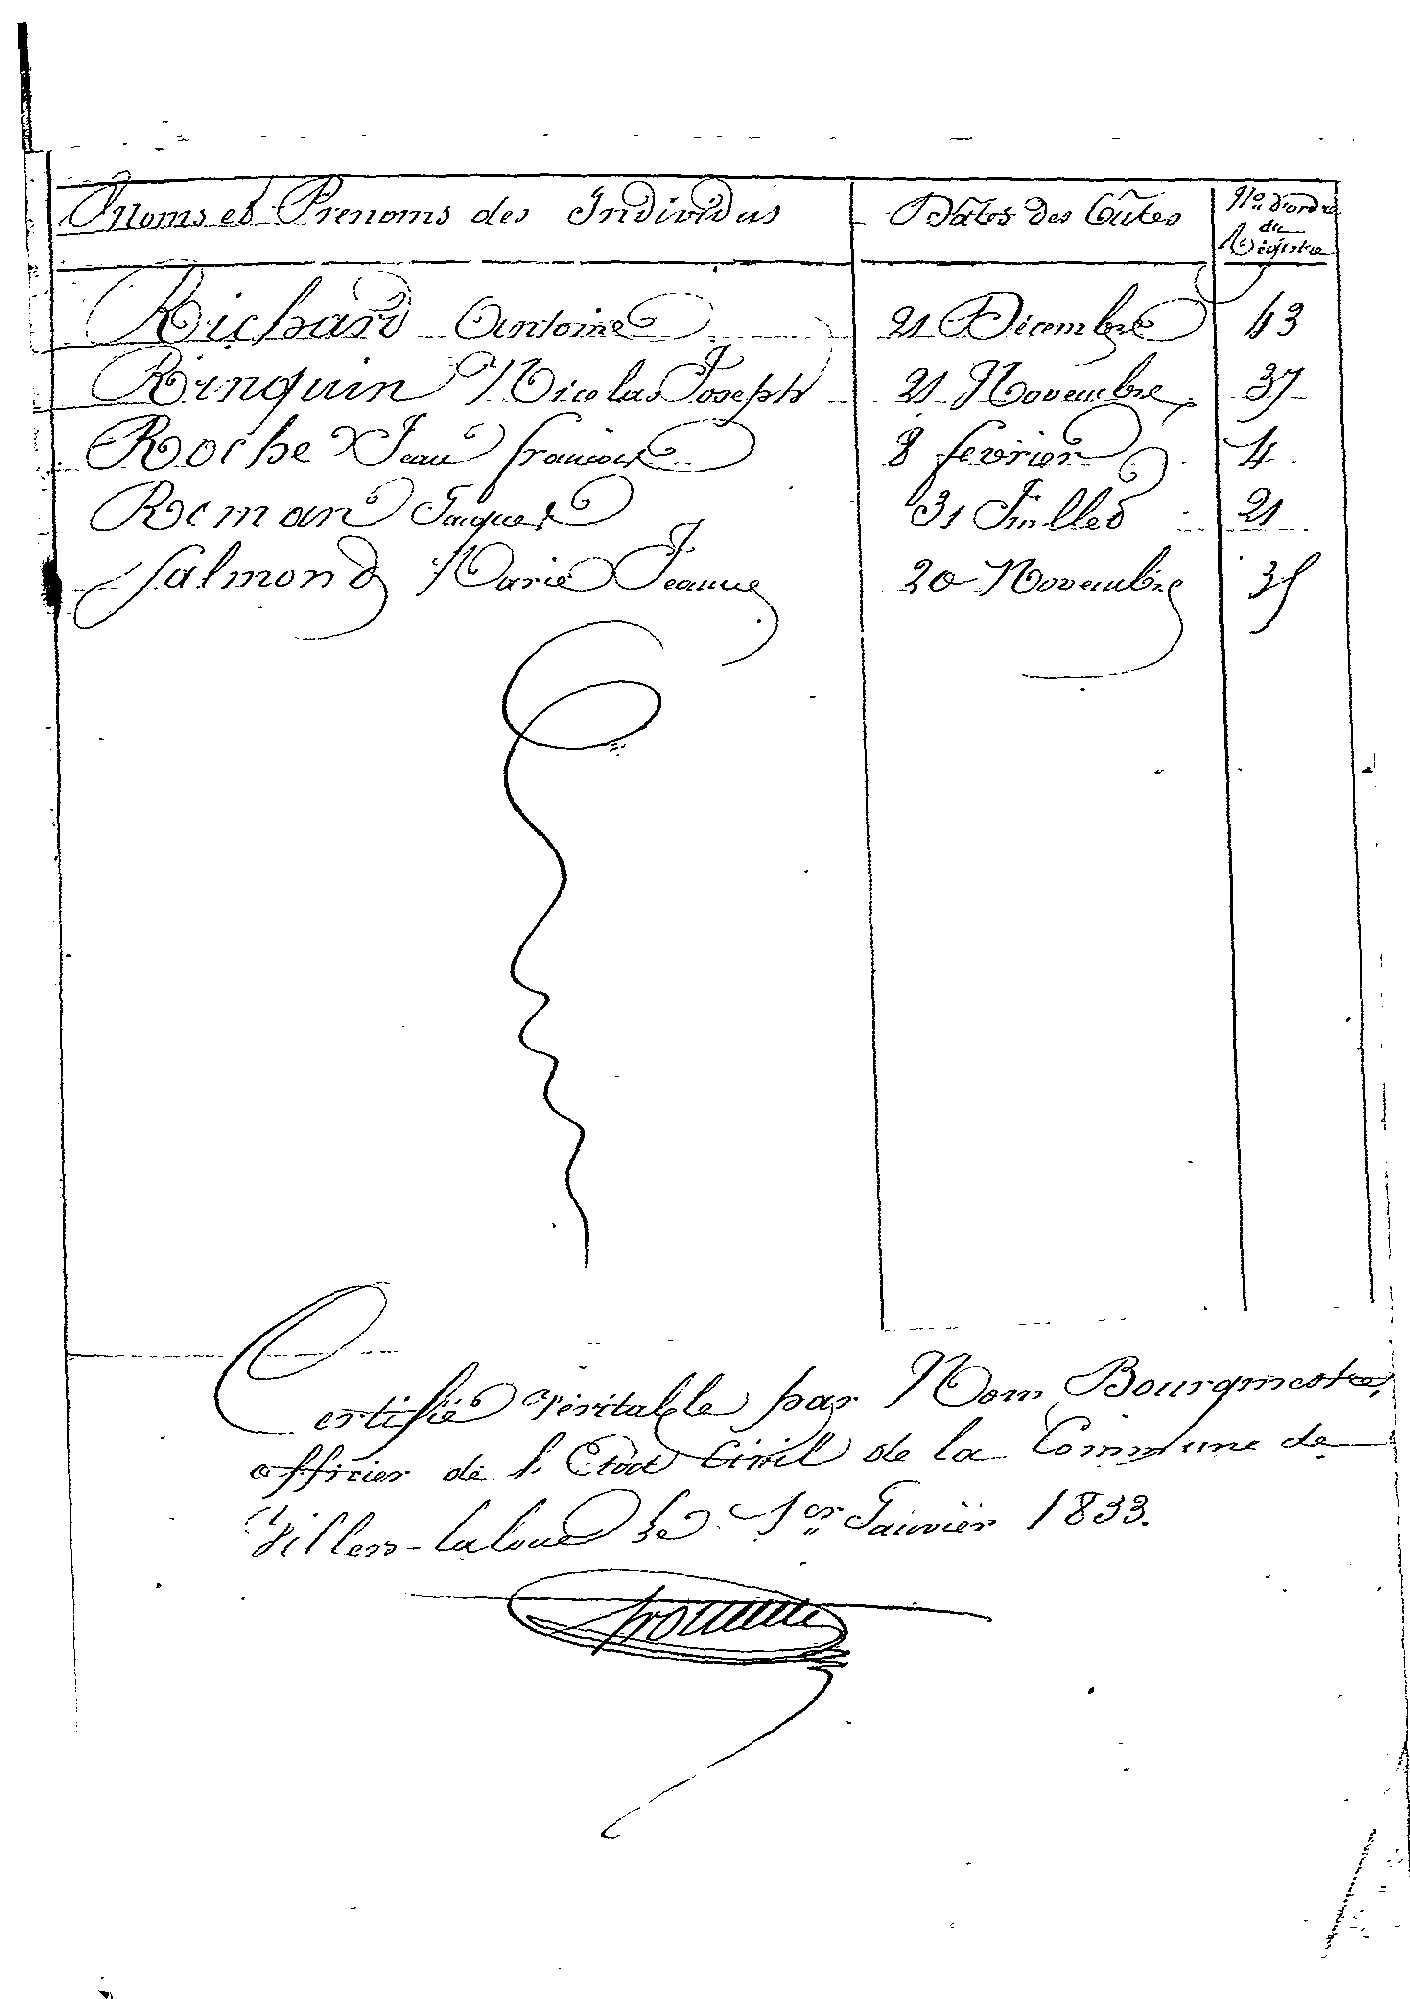 Noms et Prenoms des Individus Dates des Actes Nos d'ordre
du
Registre
Richard Antoine 21 Décembre 43
Rinquin Nicolas Joseph 21 Novembre 37
Roche Jean francois 8 fevrier 4
Roman Jaques 31 Juillet 21
Salmond Marie Jeanne 20 Novembre 35
Certifié véritable par Nous, Bourgmestre,
officier de l'Etat Civil de la Commune de
Villers-laloue le 1er Janvier 1833.